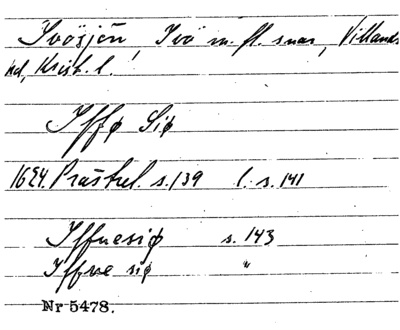 Ivösjön, Ivö m. fl. snar, Villands
hd, Krist. l.
Iffø Siø
1624. Prästrel. s. 139 l. s. 141
Iffuesiø s. 143
Iffue siø "
Nr 5478.